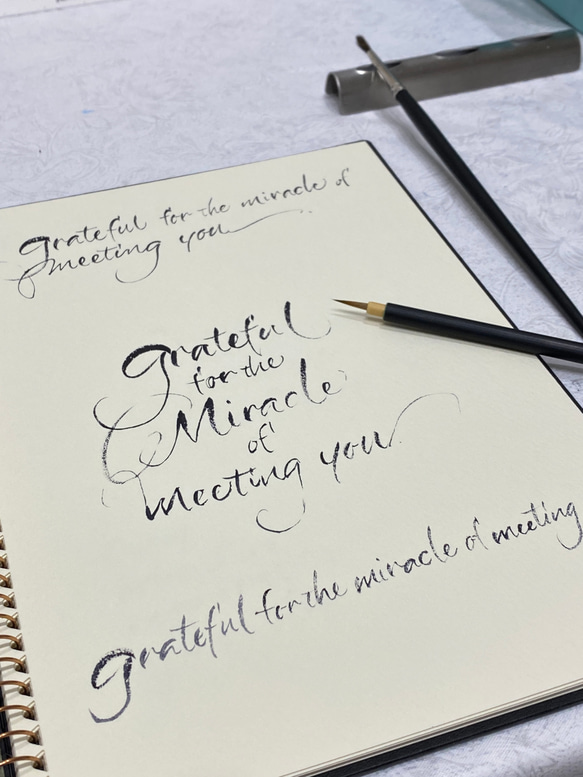 grateful for the miracle of
meeting you
grateful
for the
Miracle
of
meeting you
grateful for the miracle of meeting